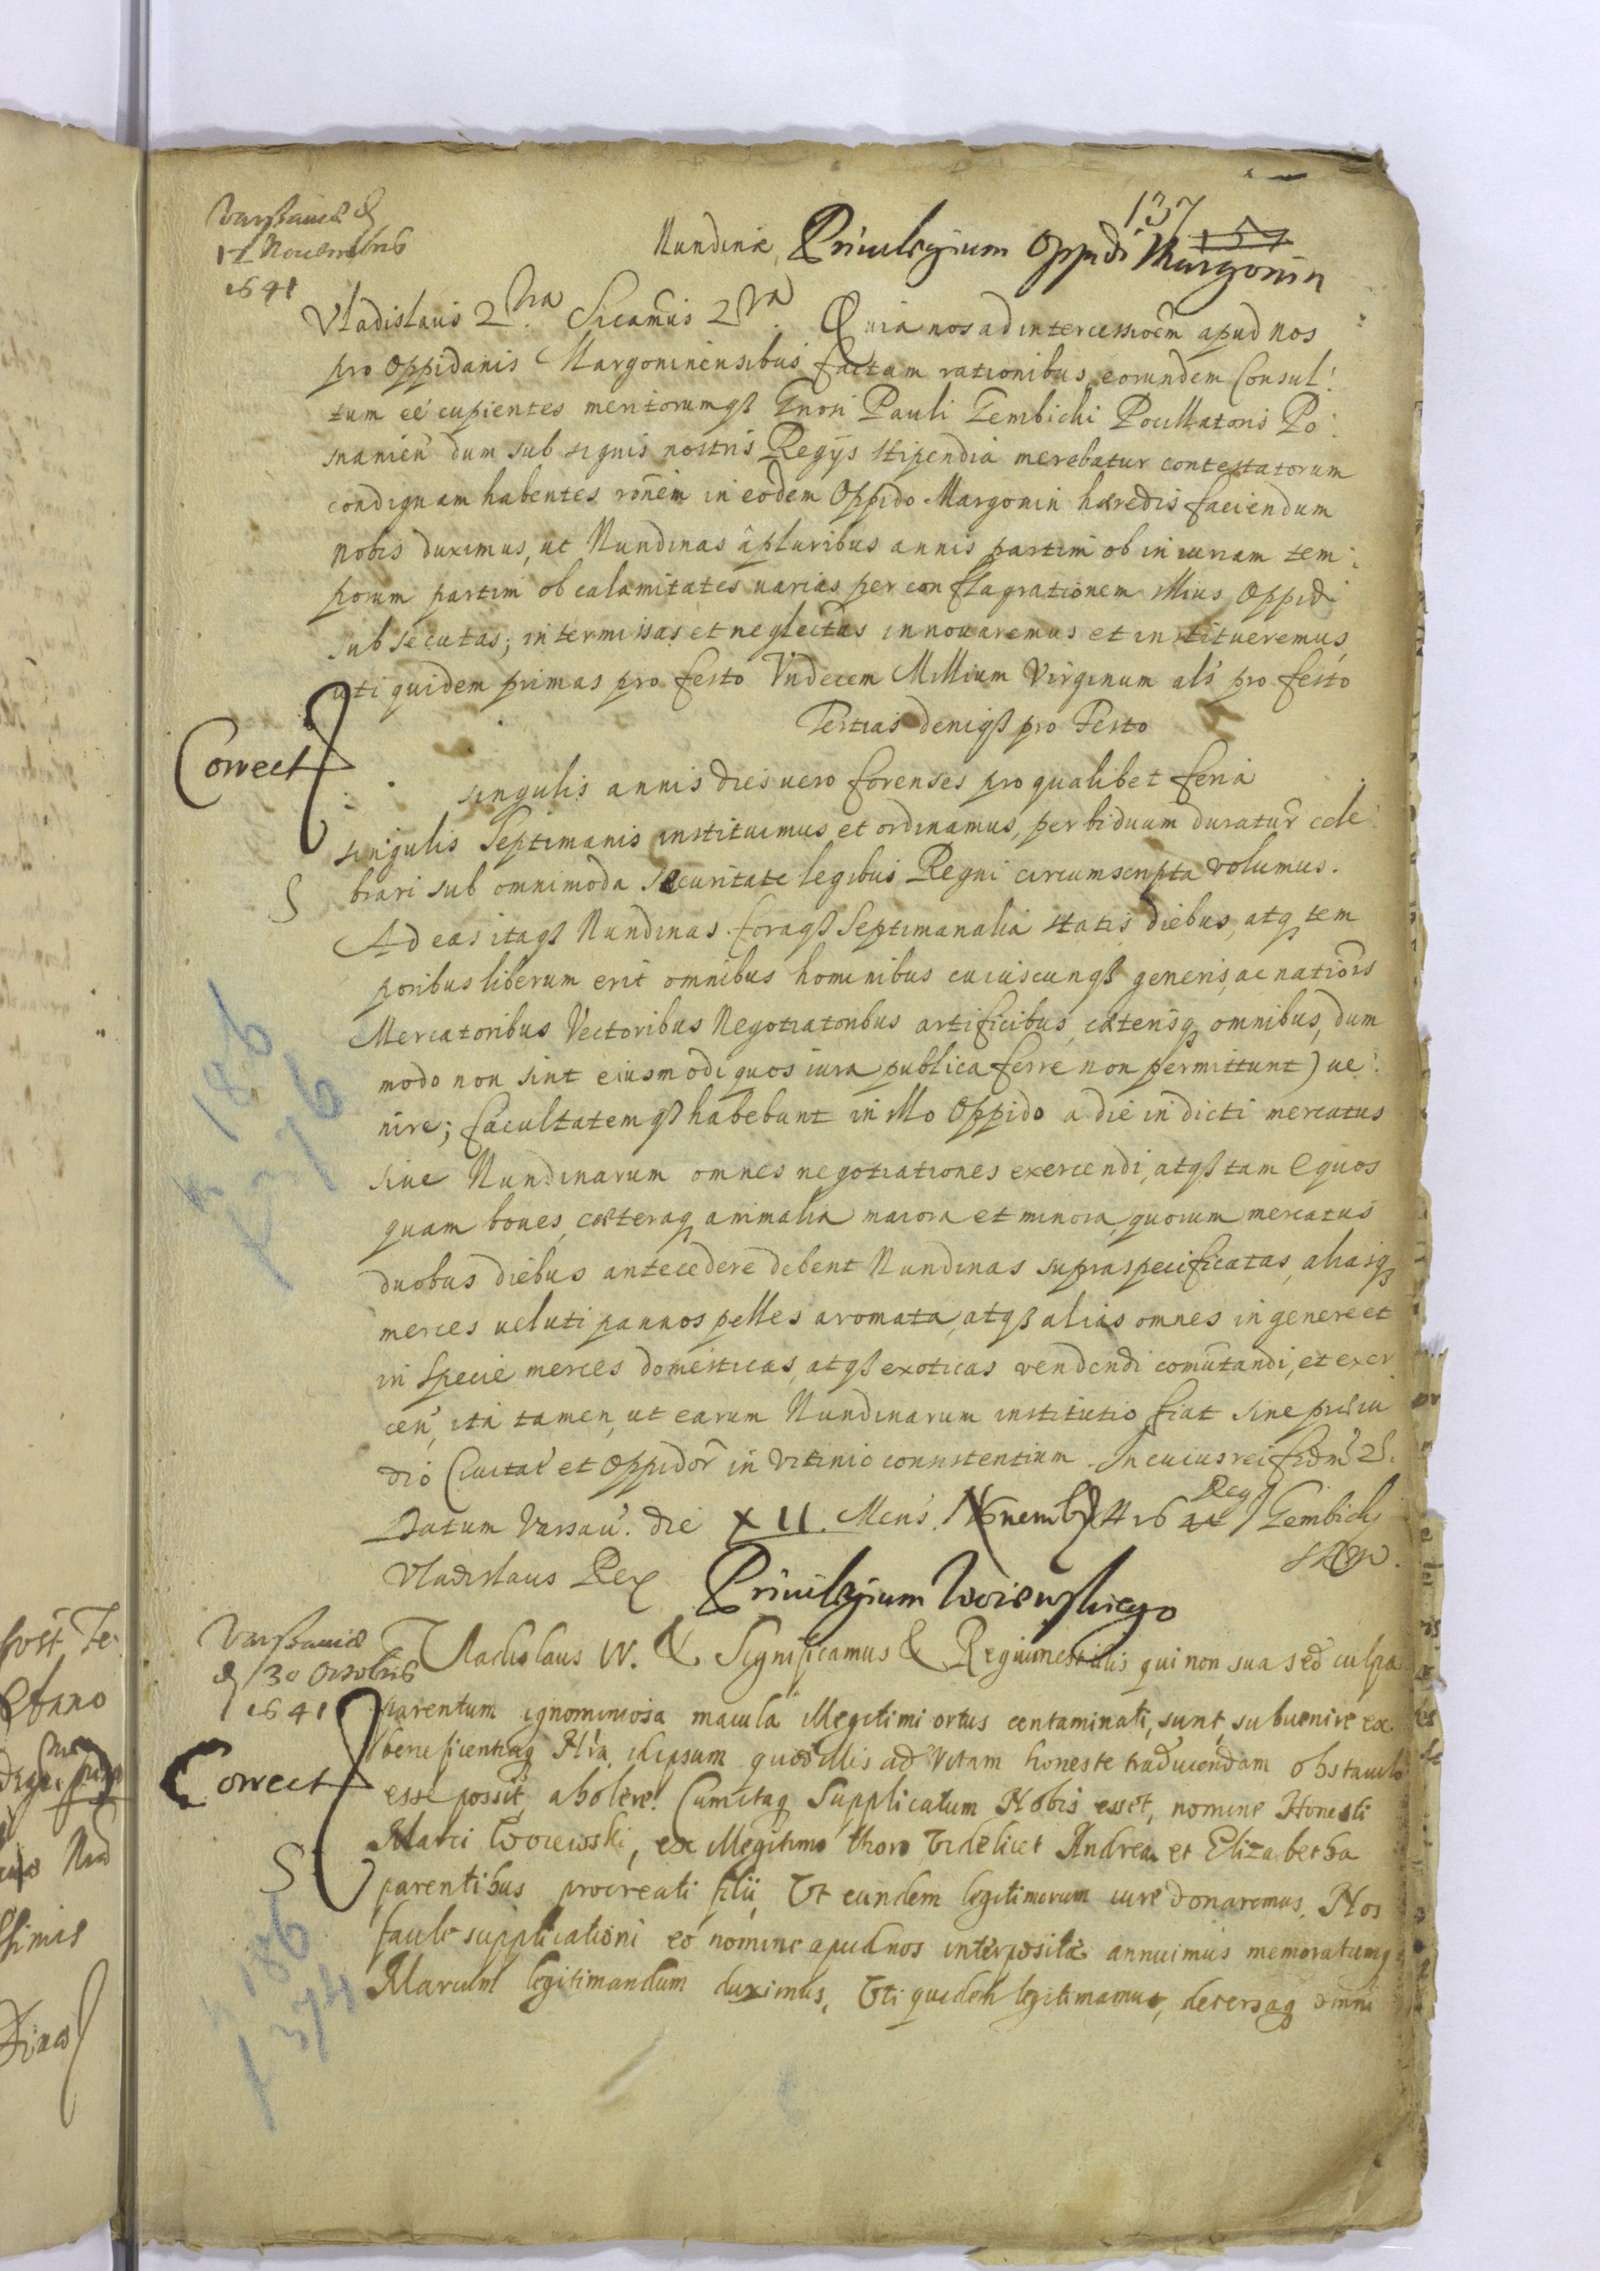 137
Varsaviae d
12 Novembris
1641
Nundinae, Privilegium Oppidi Margonin
Vladislaus 2 Quia nos ad intercessioem apud nos
pro Oppidanis Margoninensibus factam rationibus eorundem Consul:
tum ee cupientes meritorumq Gnosi Pauli Gembicki Pocillatoris Po:
snanien dum sub signis nostris Regijs stipendia merebatur contestatorum
condignam habentes ronem in eodem Oppido Margonin haeredis faciendum
nobis duximus, ut Nundinas a pluribus annis partim ob iniuriam tem:
porum partim ob calamitates varias per conflagrationem illius Oppidi
subsecutas; intermissas et neglectas innovaremus et institueremus,
uti quidem primas pro festo Vndecem Millium Virginum als pro festo
Tertias deniq pro Festo
Correct
singulis annis dies vero forenses pro qualibet feria
singulis Septimanis instituimus et ordinamus, per biduum duratur cele
brari sub omnimoda securitate legibus Regni circumscripta volumus.
S
Ad eas itaq Nundinas foraq Septimanalia statis diebus, atq tem
poribus liberum erit omnibus hominibus cuiuscunq generis, ac nationis
Mercatoribus Vectoribus Negotiatoribus artificibus caeterisq omnibus, dum
modo non sint eiusmodi quos iura publica ferre non permittunt) ve:
nire; facultatemq habebunt in illo Oppido a die indicti mercatus
sive Nundinarum omnes negotiationes exercendi, atq tam Equos
quam boves, caeteraq animalia maiora et minora, quorum mercatus
duobus diebus antecedere debent Nundinas supraspecificatas, aliasq
merces veluti pannos pelles aromata, atq alias omnes in genere et
in specie merces domesticas, atq exoticas vendendi comutandi, et exer
cen, ita tamen, ut earum Nundinarum institutio fiat sine preiu
dio Civitat et Oppidor in vicinio consistentium. In cuius rei fidm 2.
Datum Varsav. die XII. Mens. Novemb Gembicki
Vladislaus Rex
186
376
Privilegium Woiewskiego
Varsaviae
d 30 Octobris
1641
Vladislaus IV. & Significamus & Regium est illis qui non sua sed culpa
parentum ignominiosa macula illegitimi ortus contaminati, sunt, subvenire ex
beneficentiaq Nra idipsum quod illis ad vitam honeste traducendam obstaculo
Correct
esse possit, abolere. Cum itaq Supplicatum Nobis esset, nomine Honesti
Marci Woiewski, ex illegitimo thoro videlicet Andrea et Elizabetha
S
parentibus procreati filii, Ut eundem legitimorum iure donaremus. Nos
facile supplicationi eo nomine apud nos interpositae annuimus memoratumq
Marcum legitimandum duximus, Uti quidem legitimamus, detersaq omni
186
374